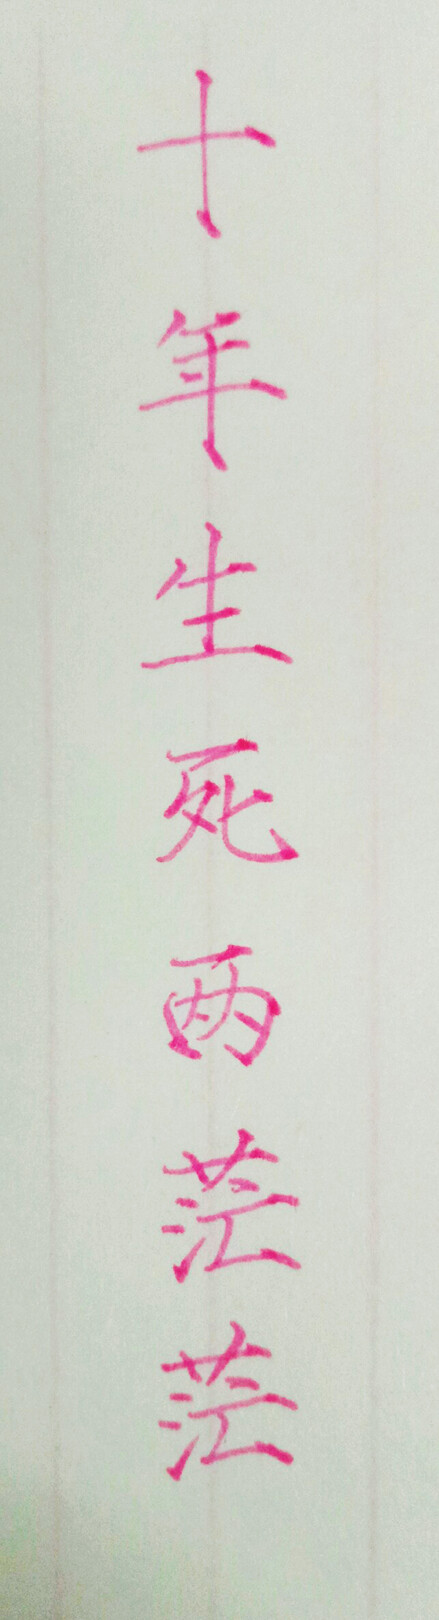 十年生死两茫茫